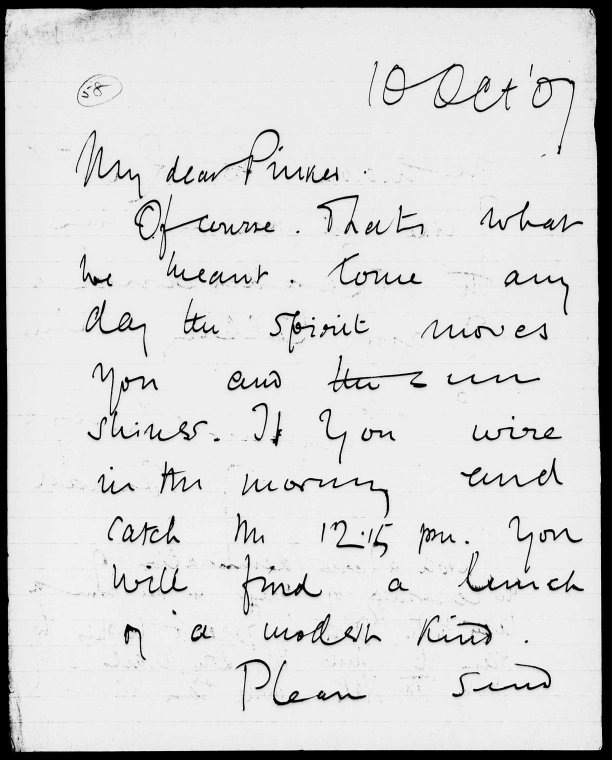 58
10 Oct '07
My dear Pinker.
Of course. Thats what
we meant. Come any
day the spirit moves
you and the sun
shines. If you wire
in the morning and
catch the 12.15 pm. you
will find a lunch
of a modest kind.
Please send